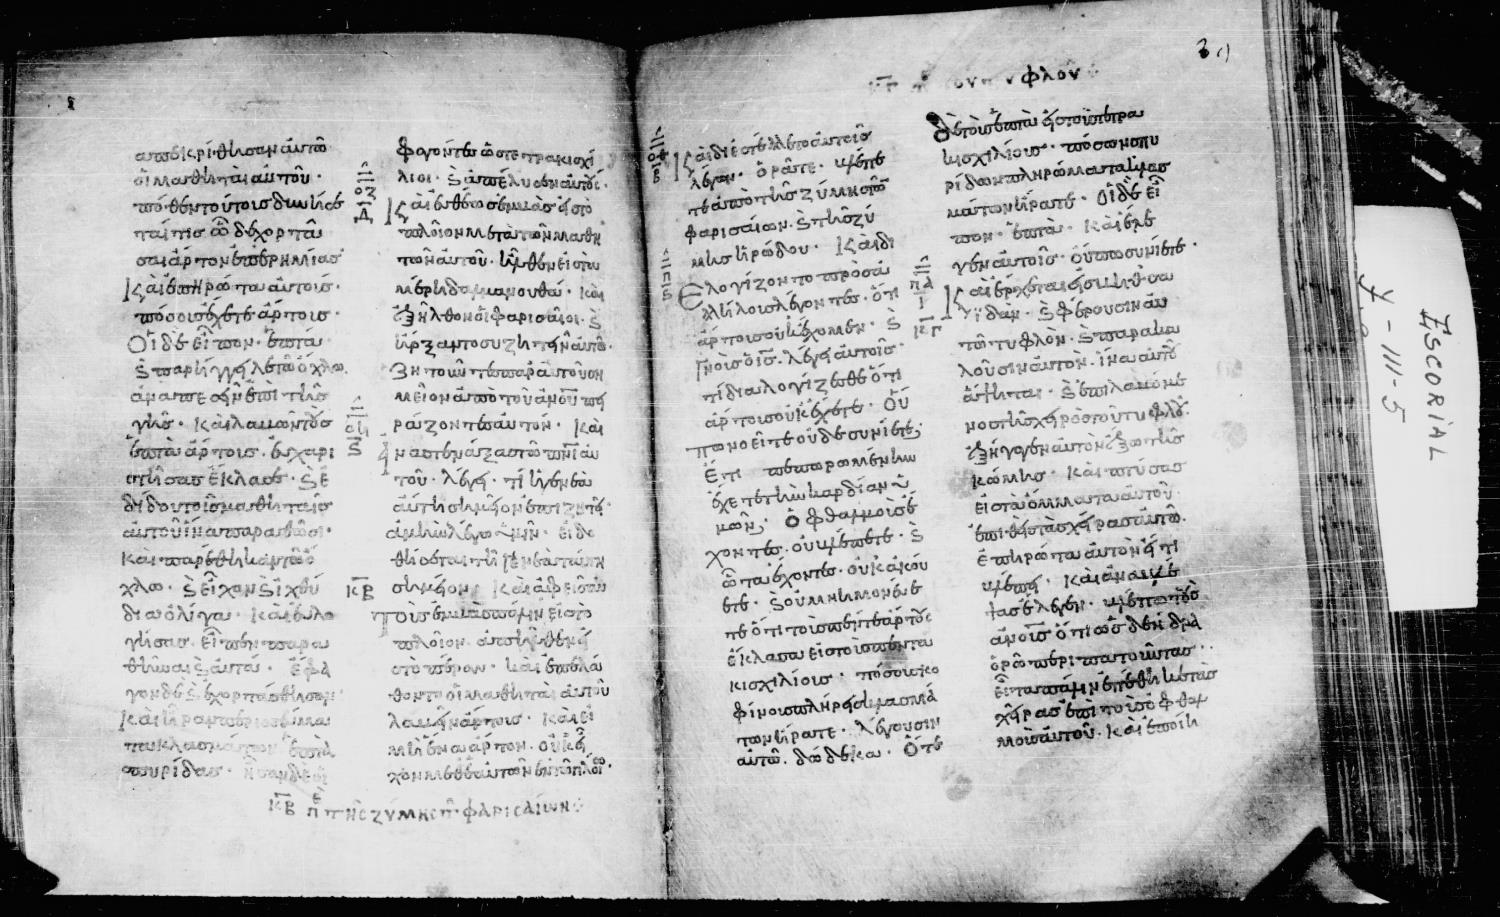 απεκρίθησαν αὐτῶ
οἱ μαθηταὶ αὐτοῦ·
πόθεν τούτοις δυνήσε
ταί τις ὧδε χορτά
σαι ἄρτον ἐπ' ἐρημίας
Καὶ ἐπηρώτα αὐτούς·
πόσους ἔχετε ἄρτους·
Οἱ δὲ εἶπον· ἑπτά·
ϗ παρήγγειλε τῶ ὄχλω
ἀναπεσεῖν ἐπὶ τῆς
γῆς· καὶ λαβὼν τοὺς
ἑπτὰ ἄρτους· εὐχαρι
στήσας ἔκλασε· ϗ ἐ
δίδου τοῖς μαθηταῖς
αὐτοῦ ἵνα παραθῶσι·
καὶ παρέθηκαν τῶ ὄ
χλω· ϗ εἶχον ϗ ἰχθύ
δια ὀλίγα· καὶ εὐλο
γήσας· εἶπεν παρα
θῆναι ϗ αὐτά· ἔφα
γον δὲ ϗ ἐχορτάσθησαν·
καὶ ἦραν περισσεύμα
τα κλασμάτων ἑπτὰ
σπυρίδας· ἦσαν δὲ οἱ
φαγόντες ὡς τετρακισχί
λιοι· ϗ ἀπέλυσεν αὐτούς·
Καὶ εὐθέως ἐμβὰς εἰς τὸ
πλοῖον μετὰ τῶν μαθη
τῶν αὐτοῦ· ἦλθεν εἰς τὰ
μέρη δαλμανουθά· καὶ
ἐξῆλθον οἱ φαρισαῖοι· ϗ
ἤρξαντο συζητεῖν αὐτῶ·
ζητοῦντες παρ' αὐτοῦ ση
μεῖον ἀπὸ τοῦ οὐνοῦ πει
ράζοντες αὐτόν· Καὶ
ἀναστενάξας τῶ πνι αὐ
τοῦ· λέγει· τί ἡ γενεὰ
αὕτη σημεῖον ἐπιζητεῖ·
ἀμὴν λέγω ὑμῖν· εἰ δο
θήσεται τῆ γενεᾶ ταύτη
σημεῖον· Καὶ ἀφεὶς αὐ
τοὺς ἐμβὰς πάλιν εἰς τὸ
πλοῖον· ἀπῆλθεν εἰ
ς τὸ πέραν· καὶ ἐπελά
θοντο οἱ μαθηταὶ αὐτοῦ
λαβεῖν ἄρτους· καὶ εἰ
μὴ ἕνα ἄρτον· οὐκ εἶ
χον μεθ' ἑαυτῶν ἐν τῶ πλοίω·
κβ πε τῆς ζύμης τ φαρισαίων
κγ τοῦ τυφλοῦ
Καὶ διεστέλλετο αὐτοῖς
λέγων· ὁρᾶτε· βλέπε
τε ἀπὸ τῆς ζύμης τῶν
φαρισαίων· ϗ τῆς ζύ
μης ἡρώδου· Καὶ δι
ελογίζοντο πρὸς ἀ
λλήλους λέγοντες· ὅτι
ἄρτους οὐκ ἔχομεν· ϗ
γνοὺς ὁ ις· λέγει αὐτοῖς·
τί διαλογίζεσθε ὅτι
ἄρτους οὐκ ἔχετε· Οὔ
πω νοεῖτε οὐδὲ συνίετε;
Ἔτι πεπωρωμένην
ἔχετε τὴν καρδίαν ὑ
μῶν; ὀφθαλμοὺς ἔ
χοντες· οὐ βλέπετε· ϗ
ὦτα ἔχοντες· οὐκ ἀκού
ετε· ϗ οὐ μνημονεύε
τε ὅτε τοὺς πέντε ἄρτους
ἔκλασα εἰς τοὺς πεντα
κισχιλίους· πόσους κο
φίνους πλήρεις κλασμά
των ἤρατε· λέγουσιν
αὐτῶ· δώδεκα· Ὅτε
δὲ τοὺς ἑπτὰ εἰς τοὺς τετρα
κισχιλίους· πόσων σπυ
ρίδων πληρώματα κλασ
μάτων ἤρατε· Οἱ δὲ εἶ
πον· ἑπτά· Καὶ ἔλε
γεν αὐτοῖς· οὔπω συνίετε·
Καὶ ἔρχεται εἰς βηθσα
ϊδάν· ϗ φέρουσιν αὐ
τῶ τυφλὸν· ϗ παρακα
λοῦσιν αὐτὸν· ἵνα αὐτοῦ
ἅψηται· ϗ ἐπιλαβόμε
νος τῆς χειρὸς τοῦ τυφλοῦ·
ἐξήγαγεν αὐτὸν ἔξω τῆς
κώμης· καὶ πτύσας
εἰς τὰ ὄμματα αὐτοῦ·
ἐπιθεὶς τὰς χεῖρας αὐτῶ·
ἐπηρώτα αὐτὸν εἴ τι
βλέπει· Καὶ ἀναβλέ
ψας ἔλεγεν· βλέπω τοὺς
ἀνους ὅτι ὡς δένδρα
ὁρῶ περιπατοῦντας·
εἶτα πάλιν ἐπέθηκε τὰς
χεῖρας ἐπὶ τοὺς ὀφθαλ
μοὺς αὐτοῦ· καὶ ἐποίη
ESCORIAL
Ψ-III-5